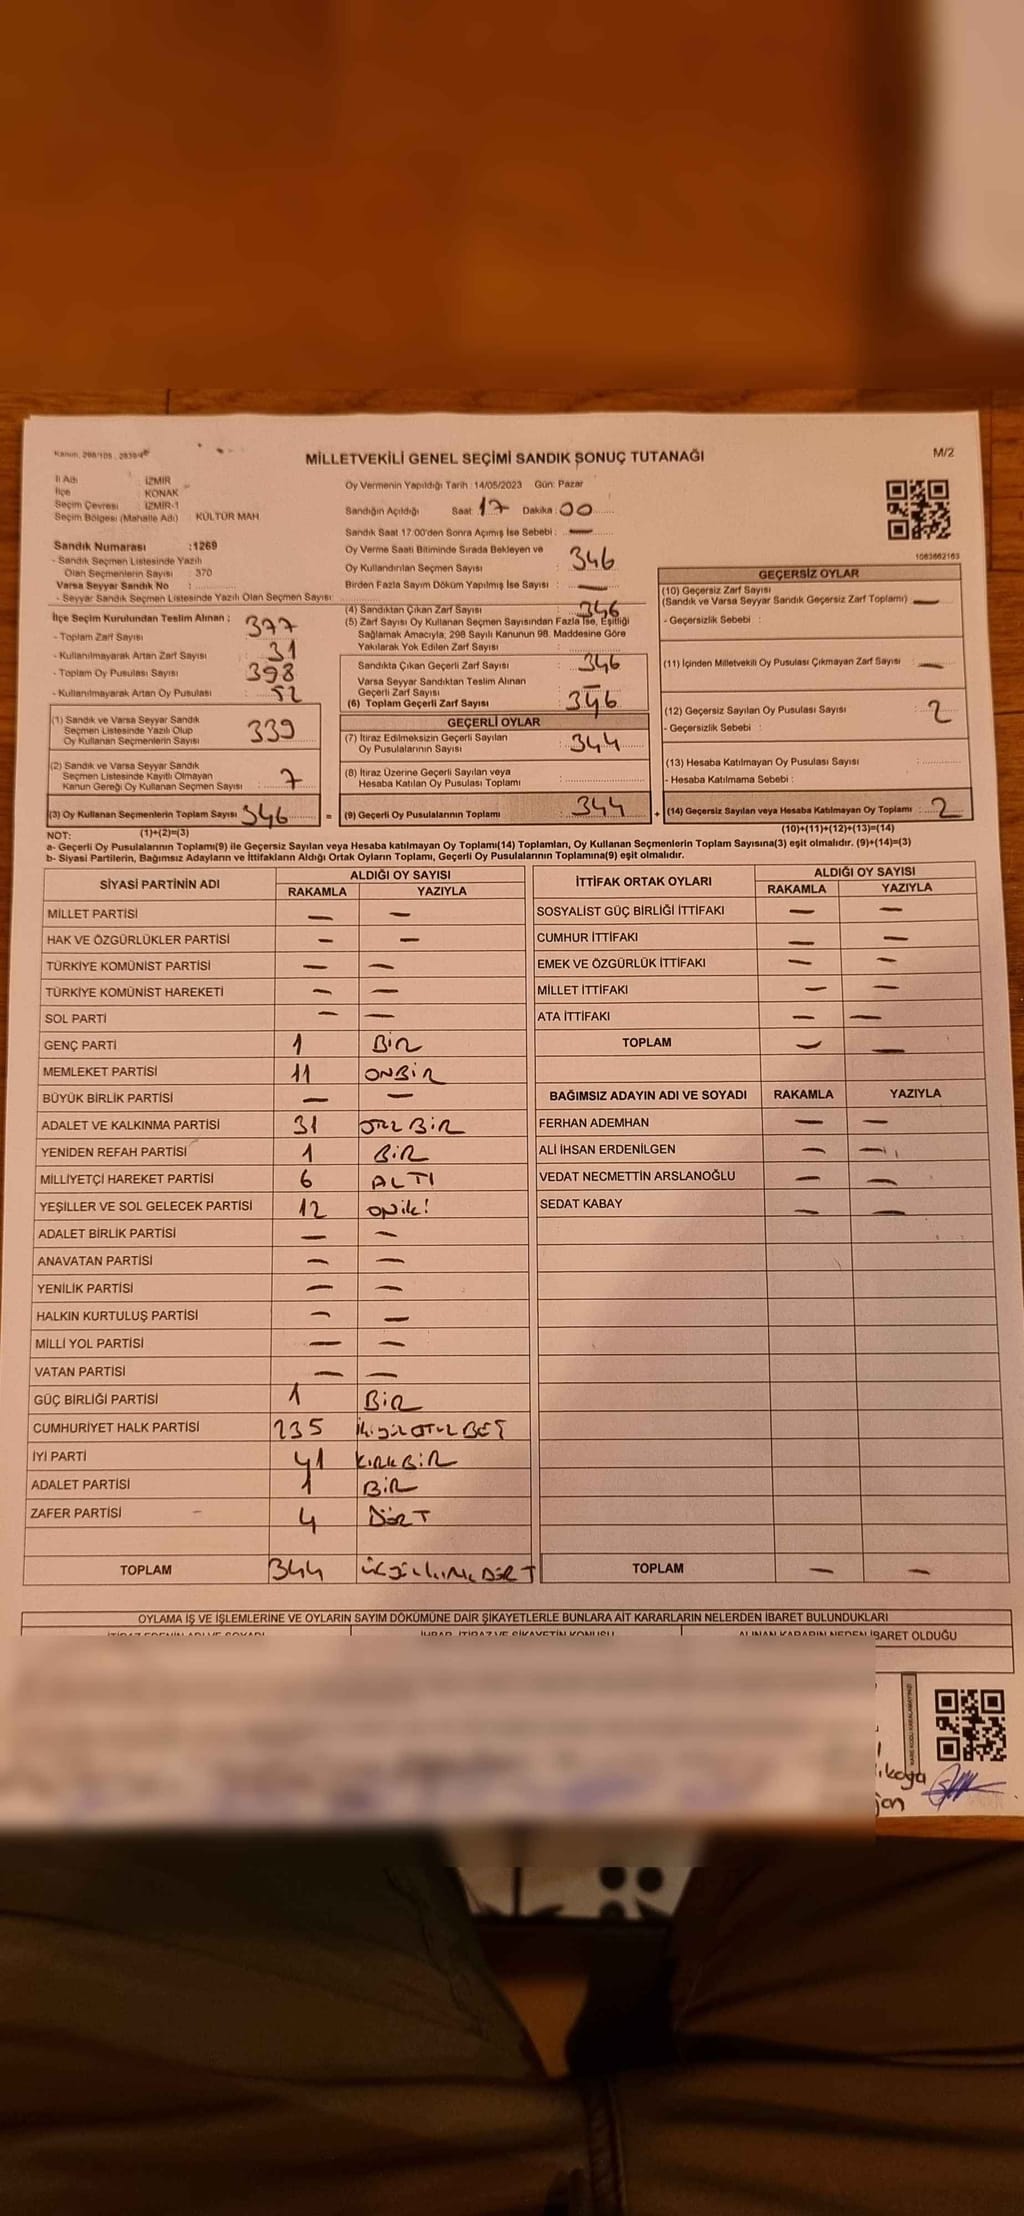 MİLLETVEKİLİ GENEL SEÇİMİ SANDIK SONUÇ TUTANAĞI
M/2
İl Adı : İZMİR
İlçe : KONAK
Seçim Çevresi : İZMİR-1
Seçim Bölgesi (Mahalle Adı) : KÜLTÜR MAH
Sandık Numarası :1269
- Sandık Seçmen Listesinde Yazılı
Olan Seçmenlerin Sayısı : 370
Varsa Seyyar Sandık No :
- Seyyar Sandık Seçmen Listesinde Yazılı Olan Seçmen Sayısı:
İlçe Seçim Kurulundan Teslim Alınan ;
- Toplam Zarf Sayısı : 377
- Kullanılmayarak Artan Zarf Sayısı : 31
- Toplam Oy Pusulası Sayısı : 398
- Kullanılmayarak Artan Oy Pusulası : 52
(1) Sandık ve Varsa Seyyar Sandık
Seçmen Listesinde Yazılı Olup
Oy Kullanan Seçmenlerin Sayısı : 339
(2) Sandık ve Varsa Seyyar Sandık
Seçmen Listesinde Kayıtlı Olmayan
Kanun Gereği Oy Kullanan Seçmen Sayısı : 7
(3) Oy Kullanan Seçmenlerin Toplam Sayısı : 346
Oy Vermenin Yapıldığı Tarih : 14/05/2023 Gün: Pazar
Sandığın Açıldığı Saat : 17 Dakika : 00
Sandık Saat 17.00'den Sonra Açımış İse Sebebi : —
Oy Verme Saati Bitiminde Sırada Bekleyen ve
Oy Kullandırılan Seçmen Sayısı : 346
Birden Fazla Sayım Döküm Yapılmış İse Sayısı : —
(4) Sandıktan Çıkan Zarf Sayısı : 346
(5) Zarf Sayısı Oy Kullanan Seçmen Sayısından Fazla İse, Eşitliği
Sağlamak Amacıyla; 298 Sayılı Kanunun 98. Maddesine Göre
Yakılarak Yok Edilen Zarf Sayısı :
Sandıkta Çıkan Geçerli Zarf Sayısı : 346
Varsa Seyyar Sandıktan Teslim Alınan
Geçerli Zarf Sayısı : —
(6) Toplam Geçerli Zarf Sayısı : 346
GEÇERLİ OYLAR
(7) İtiraz Edilmeksizin Geçerli Sayılan
Oy Pusulalarının Sayısı : 344
(8) İtiraz Üzerine Geçerli Sayılan veya
Hesaba Katılan Oy Pusulası Toplamı :
= (9) Geçerli Oy Pusulalarının Toplamı : 344
1083662163
GEÇERSİZ OYLAR
(10) Geçersiz Zarf Sayısı
(Sandık ve Varsa Seyyar Sandık Geçersiz Zarf Toplamı) : —
- Geçersizlik Sebebi :
(11) İçinden Milletvekili Oy Pusulası Çıkmayan Zarf Sayısı : —
(12) Geçersiz Sayılan Oy Pusulası Sayısı : 2
- Geçersizlik Sebebi :
(13) Hesaba Katılmayan Oy Pusulası Sayısı :
- Hesaba Katılmama Sebebi :
+ (14) Geçersiz Sayılan veya Hesaba Katılmayan Oy Toplamı : 2
NOT: (1)+(2)=(3) (10)+(11)+(12)+(13)=(14)
a- Geçerli Oy Pusulasının Toplamı(9) ile Geçersiz Sayılan veya Hesaba katılmayan Oy Toplamı(14) Toplamları, Oy Kullanan Seçmenlerin Toplam Sayısına(3) eşit olmalıdır. (9)+(14)=(3)
b- Siyasi Partilerin, Bağımsız Adayların ve İttifakların Aldığı Ortak Oyların Toplamı, Geçerli Oy Pusulalarının Toplamına(9) eşit olmalıdır.
SİYASİ PARTİNİN ADI ALDIĞI OY SAYISI
RAKAMLA YAZIYLA
MİLLET PARTİSİ — —
HAK VE ÖZGÜRLÜKLER PARTİSİ — —
TÜRKİYE KOMÜNİST PARTİSİ — —
TÜRKİYE KOMÜNİST HAREKETİ — —
SOL PARTİ — —
GENÇ PARTİ 1 BİR
MEMLEKET PARTİSİ 11 ONBİR
BÜYÜK BİRLİK PARTİSİ — —
ADALET VE KALKINMA PARTİSİ 31 OTUZ BİR
YENİDEN REFAH PARTİSİ 1 BİR
MİLLİYETÇİ HAREKET PARTİSİ 6 ALTI
YEŞİLLER VE SOL GELECEK PARTİSİ 12 ONİKİ
ADALET BİRLİK PARTİSİ — —
ANAVATAN PARTİSİ — —
YENİLİK PARTİSİ — —
HALKIN KURTULUŞ PARTİSİ — —
MİLLİ YOL PARTİSİ — —
VATAN PARTİSİ — —
GÜÇ BİRLİĞİ PARTİSİ 1 BİR
CUMHURİYET HALK PARTİSİ 235 İKİYÜZ OTUZ BEŞ
İYİ PARTİ 41 KIRKBİR
ADALET PARTİSİ 1 BİR
ZAFER PARTİSİ 4 DÖRT
TOPLAM 344 ÜÇYÜZ KIRK DÖRT
İTTİFAK ORTAK OYLARI ALDIĞI OY SAYISI
RAKAMLA YAZIYLA
SOSYALİST GÜÇ BİRLİĞİ İTTİFAKI — —
CUMHUR İTTİFAKI — —
EMEK VE ÖZGÜRLÜK İTTİFAKI — —
MİLLET İTTİFAKI — —
ATA İTTİFAKI — —
TOPLAM — —
BAĞIMSIZ ADAYIN ADI VE SOYADI RAKAMLA YAZIYLA
FERHAN ADEMHAN — —
ALİ İHSAN ERDENİLGEN — —
VEDAT NECMETTİN ARSLANOĞLU — —
SEDAT KABAY — —
TOPLAM — —
OYLAMA İŞ VE İŞLEMLERİNE VE OYLARIN SAYIM DÖKÜMÜNE DAİR ŞİKAYETLERLE BUNLARA AİT KARARLARIN NELERDEN İBARET BULUNDUKLARI
İHBAR, İTİRAZ VE ŞİKAYETİN KONUSU ALINAN KARARIN NEDEN İBARET OLDUĞU